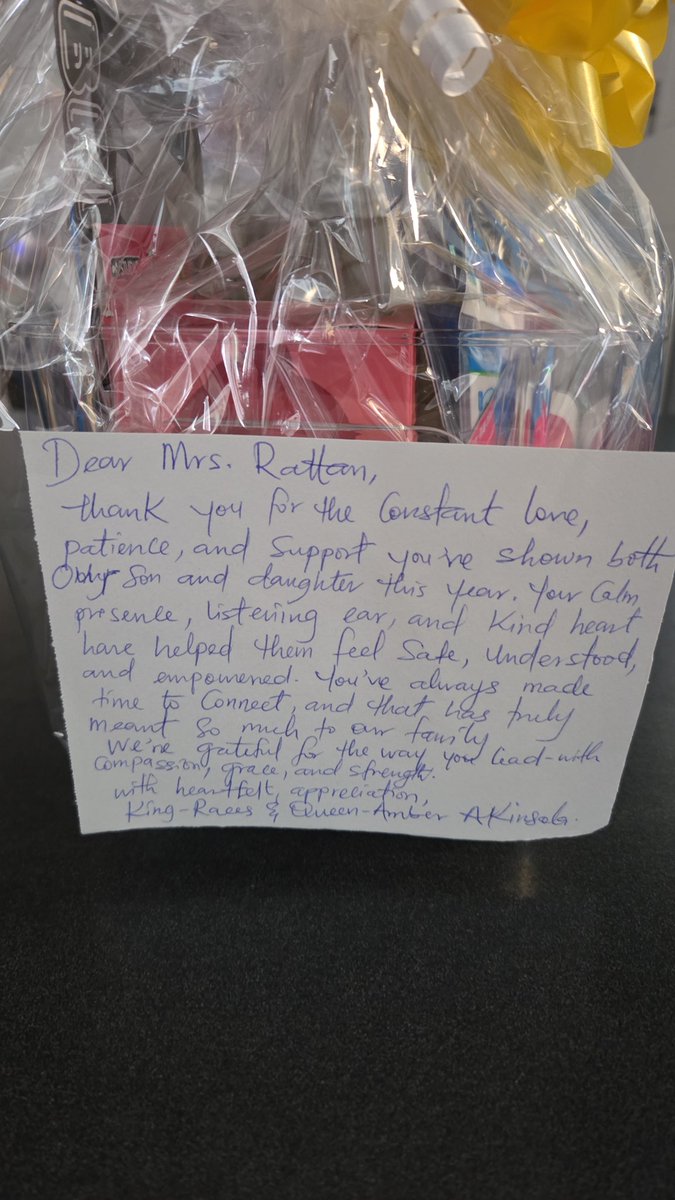 Dear Mrs. Rattan,
thank you for the Constant love,
patience, and Support you've shown both
Son and daughter this year. Your Calm
presence, listening ear, and Kind heart
have helped them feel Safe, Understood,
and empowered. You've always made
time to Connect, and that has truly
meant So much to our family
We're grateful for the way you Lead-with
Compassion, grace, and strength.
with heartfelt, appreciation,
King-Races & Queen-Amber